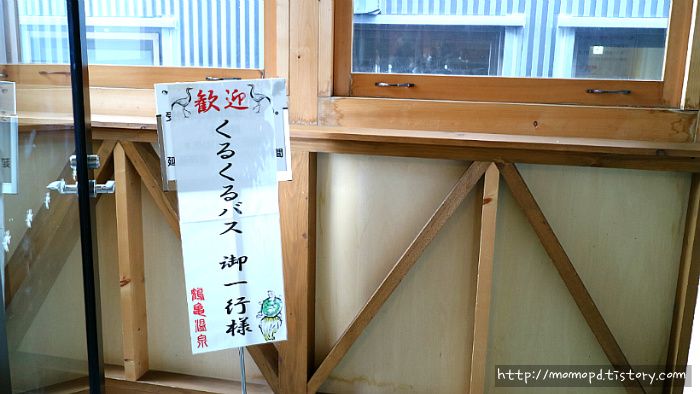 歓迎
くるくるバス 御一行様
鶴亀温泉
http://momopd.tistory.com